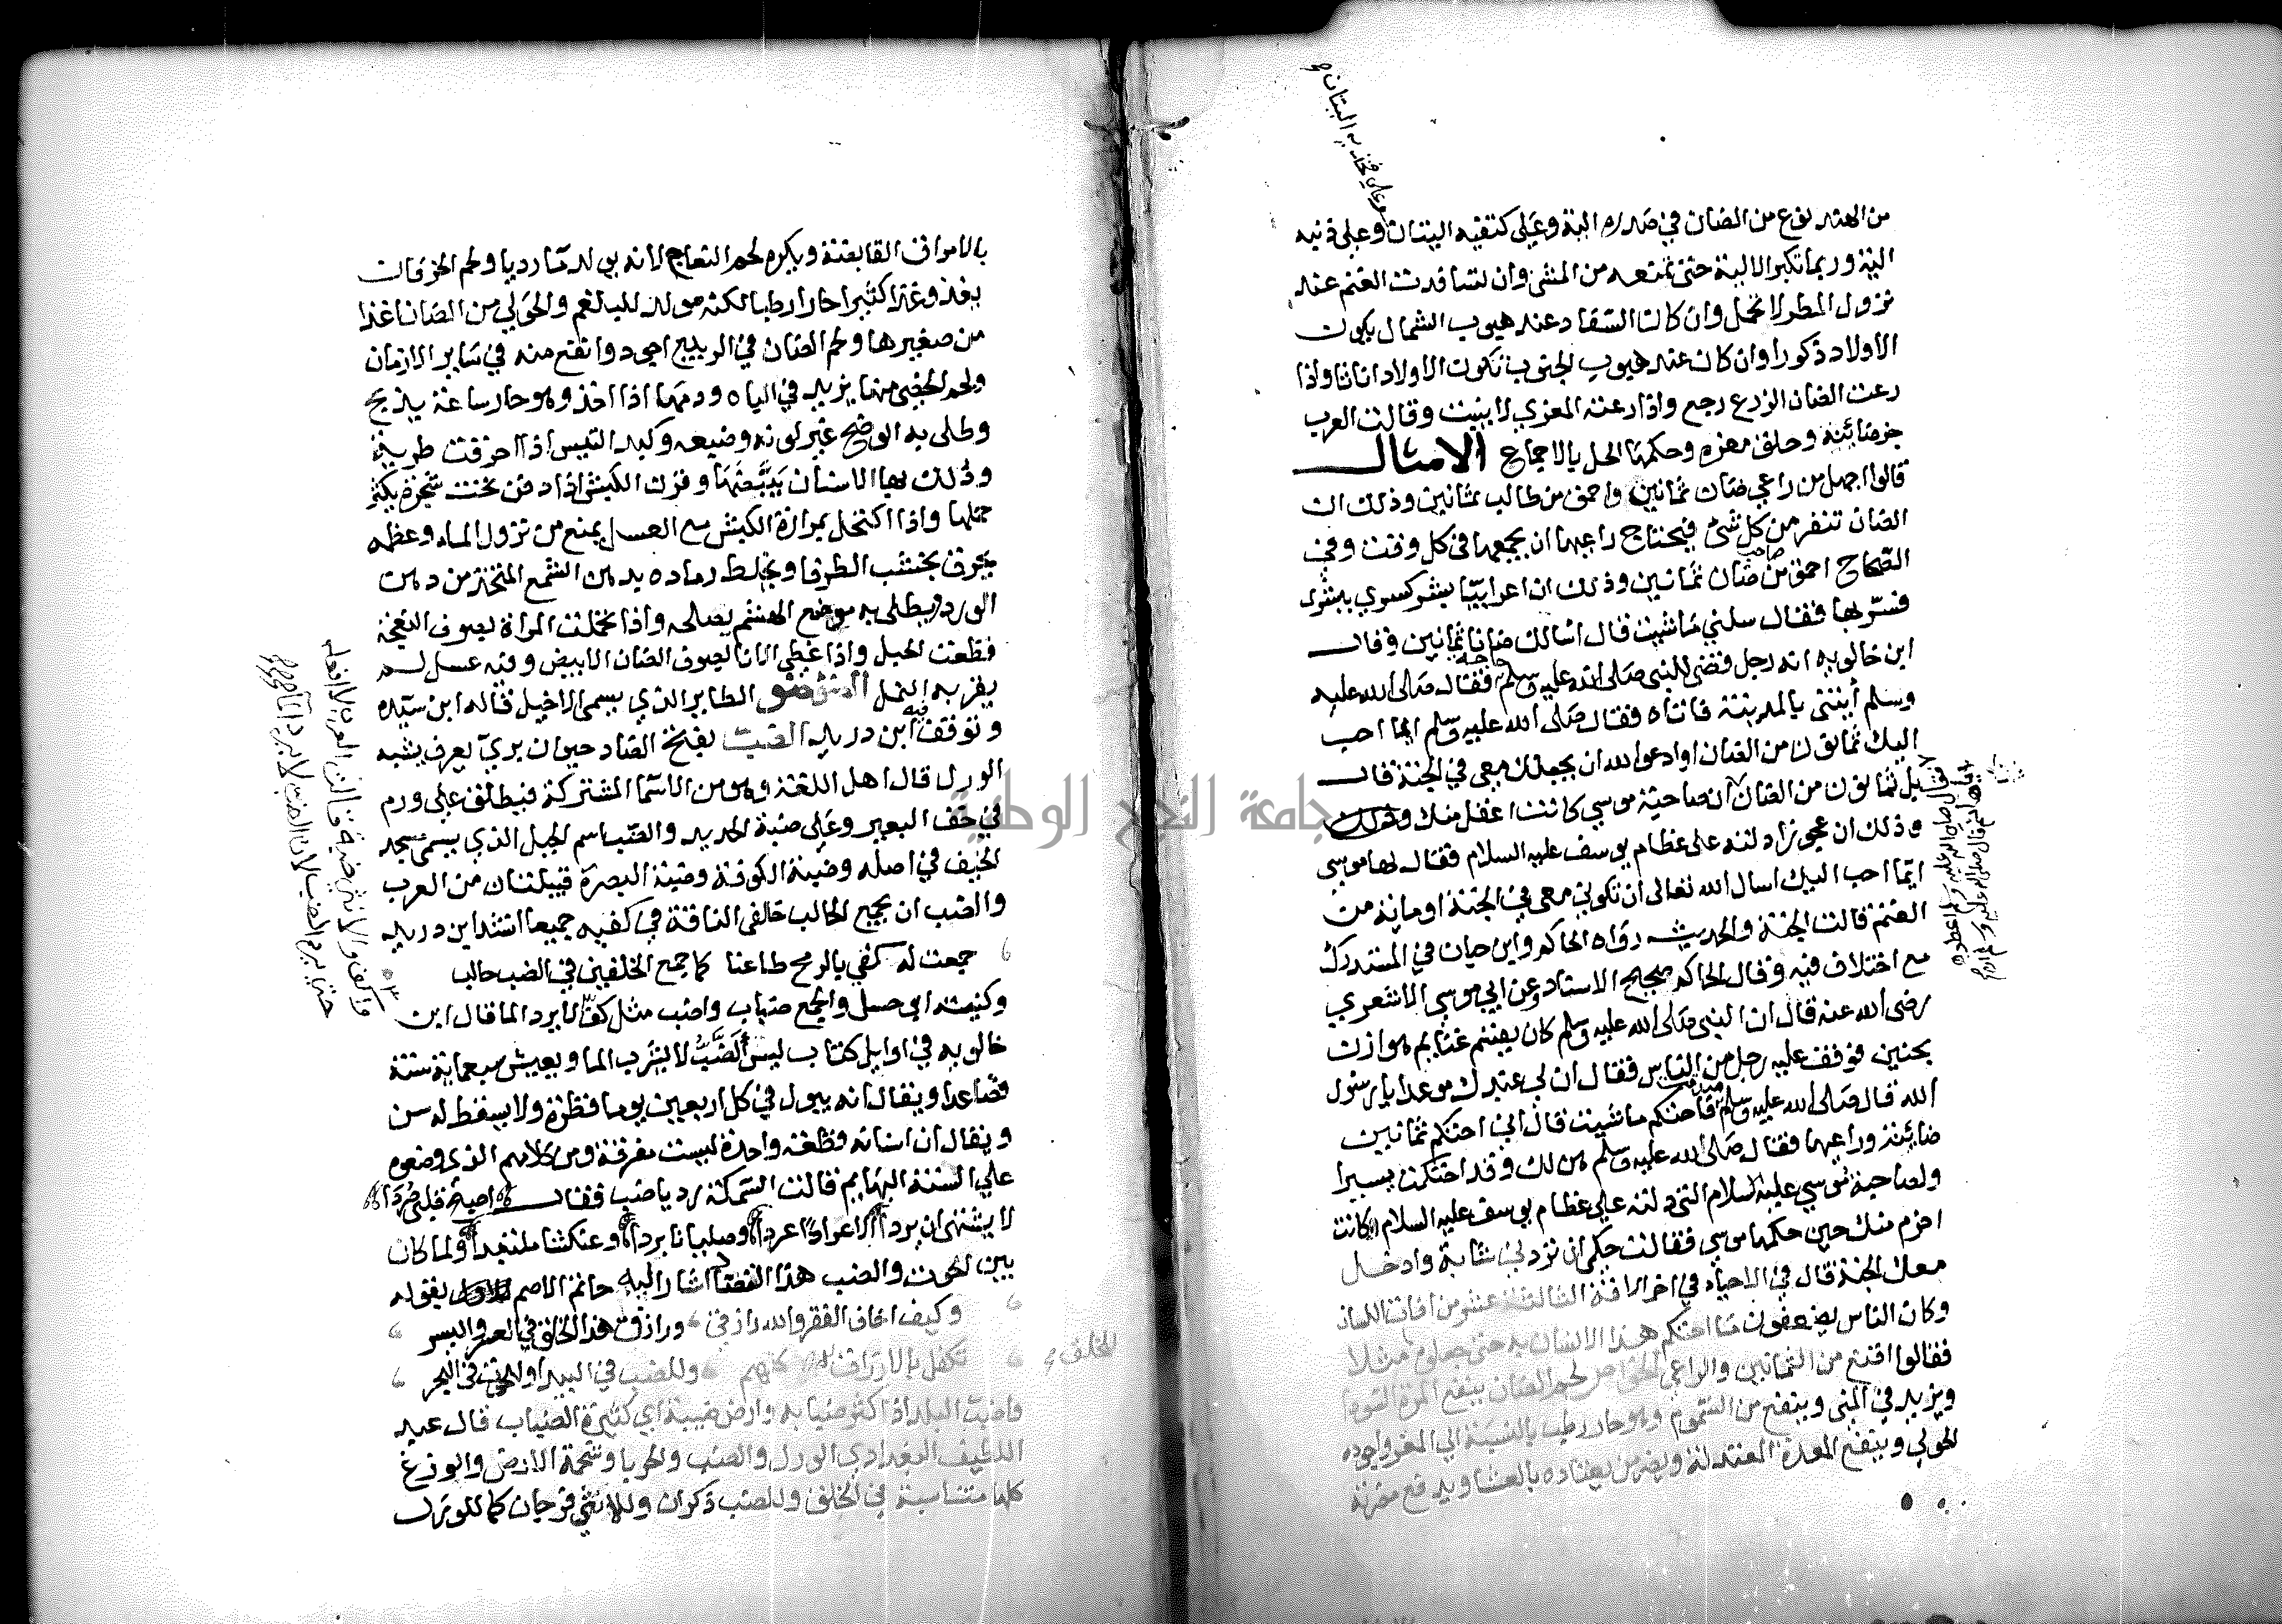 وعلى فخذيه اليتان صح
من الهند نوع من الضان في صدره الية وعلى كتفيه اليتان وعلى ذنبه
الية وربما تكبر الالية حتى تمنعه من المشي وان تسافدت الغنم عند
نزول المطر لا تحمل وان كان السفاد عند هبوب الشمال يكون
الاولاد ذكورا وان كان عند هبوب الجنوب تكون الاولاد اناثا واذا
رعت الضان الزرع رجع واذا رعته المعزي لا ينبت وقالت العرب
جز ضائنه وحلق معزه وحكمها الحل بالاجماع الامثال
قالوا اجهل من راعي ضان ثمانين واحمق من طالب ثمانين وذلك ان
الضان تنفر من كل شئ فيحتاج راعيها ان يجمعها في كل وقت وفي
الصحاح احمق من صاحب ضان ثمانين وذلك ان اعرابيا بشر كسري ببشرى
فسر بها فقال سلني ما شيت قال اسالك ضانا ثمانين وقال
ابن خالويه انه رجل قضى للنبي صلى الله عليه وسلم حاجه فقال صلى الله عليه
وسلم أيتني بالمدينة فاتاه فقال صلى الله عليه وسلم ايما احب
اليك ثمانون من الضان او ادعو الله ان يجعلك معي في الجنة قال
بل ثمانون من الضان ان صاحبة موسي كانت اعقل منك
فقال صلى الله عليه وسلم اعطوه
اياها ثم قال صلى الله عليه وسلم
وذلك ان عجوزا دلته على عظام يوسف عليه السلام فقال لها موسي
ايما احب اليك اسال الله تعالى ان تكوني معي في الجنة او ماية من
الغنم قالت الجنة والحديث رواه الحاكم وابن حبان في المستدرك
مع اختلاف فيه وقال الحاكم صحيح الاسناد وعن ابي موسي الاشعري
رضى الله عنه قال ان النبي صلى الله عليه وسلم كان يقسم غنايم هوازن
بحنين فوقف عليه رجل من الناس فقال ان لي عندك موعدا يا رسول
الله قال صلى الله عليه وسلم صدقت فاحتكم ما شيت قال اني احتكم ثمانين
ضائنة وراعيها فقال صلى الله عليه وسلم هي لك وقد احتكمت يسيرا
ولصاحبة موسي عليه السلام التي دلته على عظام يوسف عليه السلام كانت
احزم منك حين حكمها موسي فقالت حكمي ان تردني شابة وادخل
معك الجنة قال في الاحياء في اخر الافة الثالثة عشر من افات اللسان
وكان الناس يضعفون ما احتكم هذا الانسان به حتى جعلوه مثلا
فقالوا اقنع من الثمانين والراعي الخواص لحم الضان ينفع المرة السودا
ويزيد في المني وينفع من السموم وهو حار رطب بالنسبة الي المعز واجوده
الحولي وينفع المعدة المعتدلة ويضر من يعتاده بالعشا ويدفع مضرته
بالامراق القابضة ويكره لحم النعاج لانه يولد دما رديا ولحم الخرفان
يغذو غذا كثيرا حارا رطبا لكنه مولد للبلغم والحولي من الضان اغذا
من صغيرها ولحم الضان في الربيع اجود وانفع منه في ساير الازمان
ولحم الخصي منها يزيد في الباه ودمها اذا اخذ وهو حار ساعة يذبح
وطلى به الوضح غير لونه وضيعه وكبد التيس اذا احرقت طرية
ودلك بها الاسنان بيضتها وقرن الكبش اذا دفن تحت شجرة يكثر
حملها واذا اكتحل بمرارة الكبش مع العسل يمنع من نزول الماء وعظمه
يحرق بخشب الطرفا ويخلط رماده بدهن الشمع المتخذ من دهن
الورد ويطلى به موضع الهشم يصلحه واذا تحملت المراة بصوف النعجة
قطعت الحبل واذا غطي الانا بصوف الضان الابيض وفيه عسل لم
يقربه النمل الضؤضؤ الطاير الذي يسمى الاخيل قاله ابن سيده
وتوقف فيه ابن دريد الضب بفتح الضاد حيوان بري يعرف يشبه
الورل قال اهل اللغة وهو من الاسما المشتركة فيطلق على ورم
في خف البعير وعلى ضبة الحديد والضب اسم الجبل الذي يسمى مسجد
الخيف في اصله وضبة الكوفة وضبة البصرة قبيلتان من العرب
والضب ان يجمع الحالب خلفى الناقة في كفيه جميعا انشد ابن دريد
جمعت له كفي بالرمح طاعنا كما جمع الخلفين في الضب حالب
وكنيته ابو حسل والجمع ضباب واضب مثل كف
واكف والانثي ضبة قالت العرب لا افعله
حتى يرد الضب لان الضب لا يرد الما صح
لا يرد الما قال ابن
خالويه في اوايل كتاب ليس الضب لا يشرب الما ويعيش سبعماية سنة
فصاعدا ويقال انه يبول في كل اربعين يوما قطرة ولا يسقط له سن
ويقال ان اسنانه قطعة واحدة ليست مفرقة ومن كلامهم الذي وضعوه
على السنة البهايم قالت السمكة رد يا ضب فقال اصبح قلبي صردا
لا يشتهى ان يردا الا عرادا عردا وصليانا بردا وعنكثا ملتبدا ولما كان
بين الحوت والضب هذا التضاد اشار اليه حاتم الاصم بقوله
وكيف اخاف الفقر والله رازقي ورازق هذا الخلق في العسر واليسر
تكفل بالارزاق للخلق كلهم وللضب في البيدا وللحوت في البحر
واضبت البلد اذا كثر ضبابه وارض ضببة اي كثيرة الضباب قال عبد
اللطيف البغدادي الورل والضب والحربا وشحمة الارض والوزغ
كلها متناسبة في الخلق وللضب ذكران وللانثي فرجان كما للورل
جامعة النجاح الوطنية